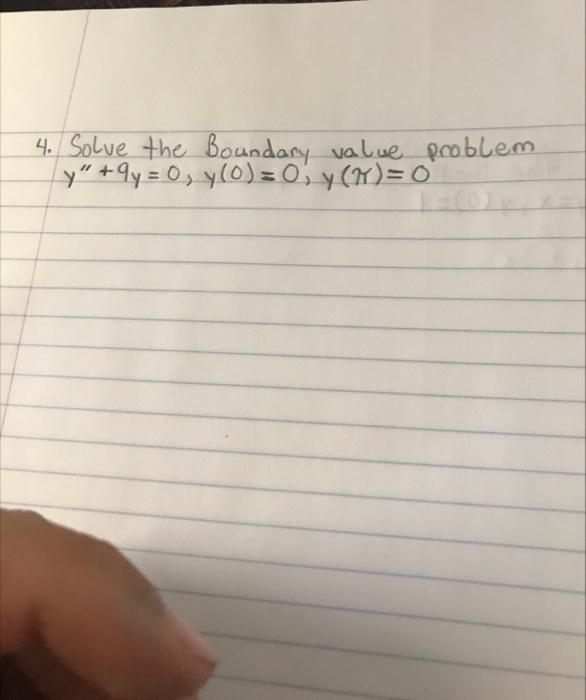 4. Solve the Boundary value problem
y'' + 9y = 0, y(0) = 0, y(π) = 0